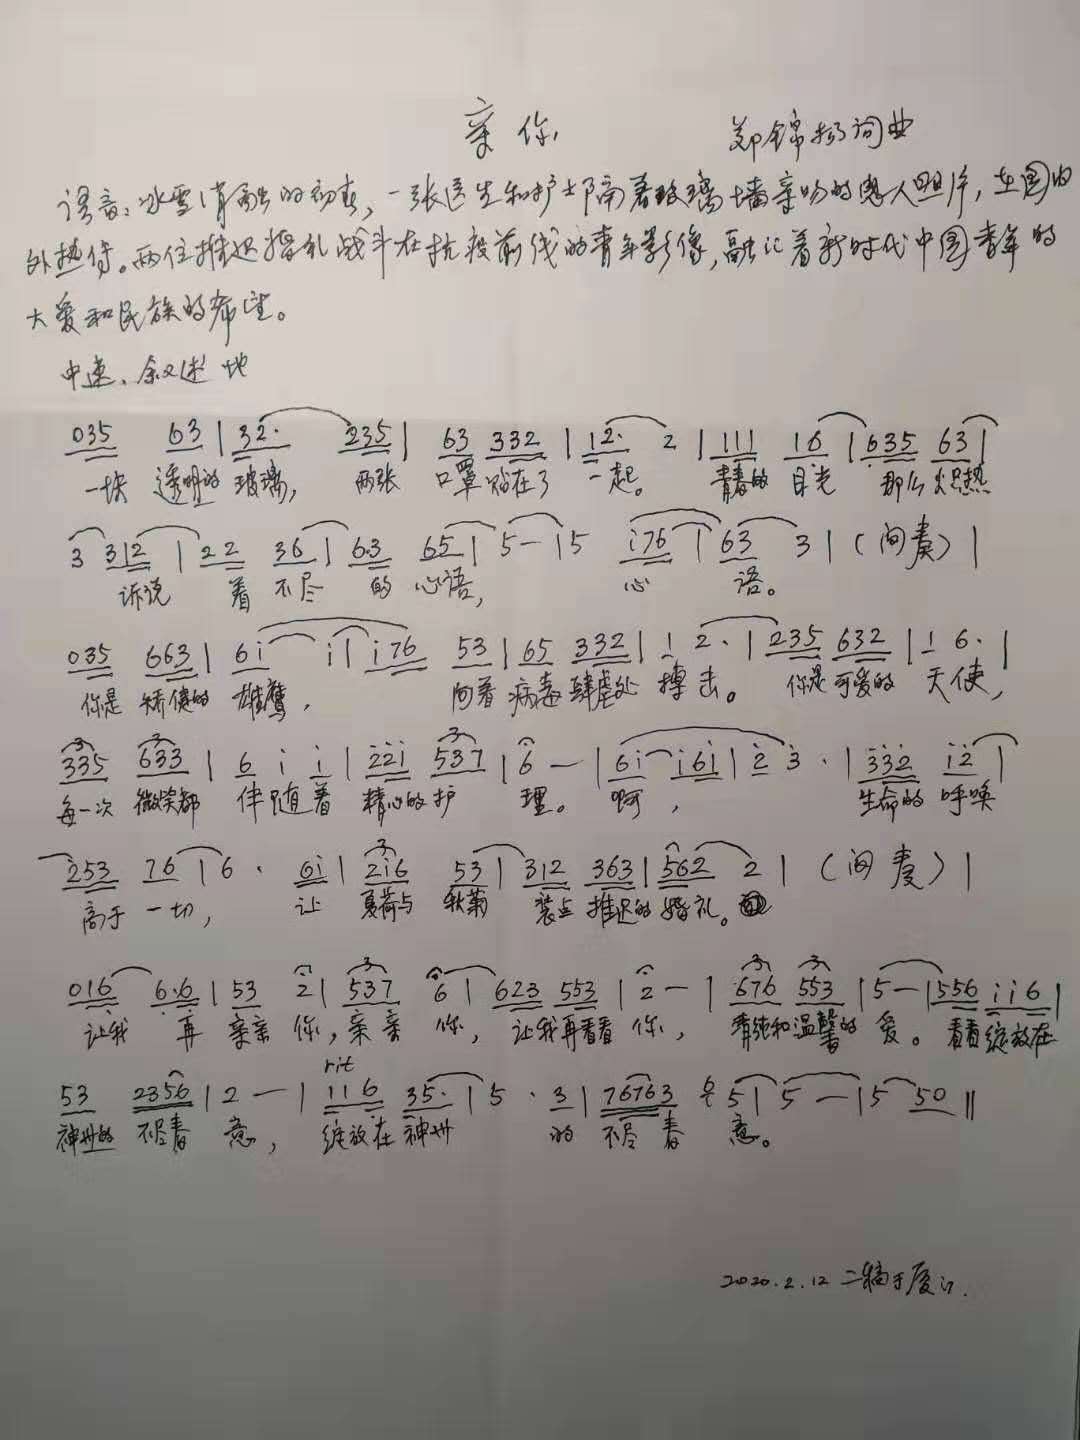 亲你
郑锦扬词曲
语音：冰雪消融的初春，一张医生和护士隔着玻璃墙亲吻的恋人照片，在国内
外热传。两位推迟婚礼战斗在抗疫前线的青年影像，融汇着新时代中国青年的
大爱和民族的希望。
中速、叙述地
035 63 | 32· 235 | 63 332 | 12· 2 | 111 16 | 635 63 |
一块 透明的 玻璃， 两张 口罩 贴在了 一起。 青春的 目光 那么 炽热
3 312 | 22 36 | 6·3 65 | 5— | 5 i76 | 63 3 | （间奏） |
诉说 着 不尽 的 心语， 心 语。
035 663 | 6i i | i76 53 | 65 332 | 1 2· | 235 632 | 1 6· |
你是 矫健的 雄鹰， 向着 病毒 肆虐处 搏击。 你是 可爱的 天使，
335 633 | 6 i i | 22i 537 | 6 — | 6i i6i | 2 3 · | 332 i2 |
每一次 微笑都 伴随着 精心的 护 理。 啊， 生命的 呼唤
253 76 | 6 · 6i | 2i6 53 | 312 363 | 562 2 | （间奏） |
高于 一切， 让 夏荷与 秋菊 装点 推迟的 婚礼。
016 6·6 | 53 2 | 537 6 | 623 553 | 2 — | 676 553 | 5 — | 556 ii6 |
让我 再 亲亲 你，亲亲 你， 让我再看看 你， 清纯和温馨的 爱。 看看绽放在
rit
53 2356 | 2 — | 116 35· | 5 · 3 | 76763 5 | 5 — | 5 50 ‖
神州的 不尽春 意， 绽放在 神州 的 不尽 春 意。
2020.2.12 二稿于厦门.